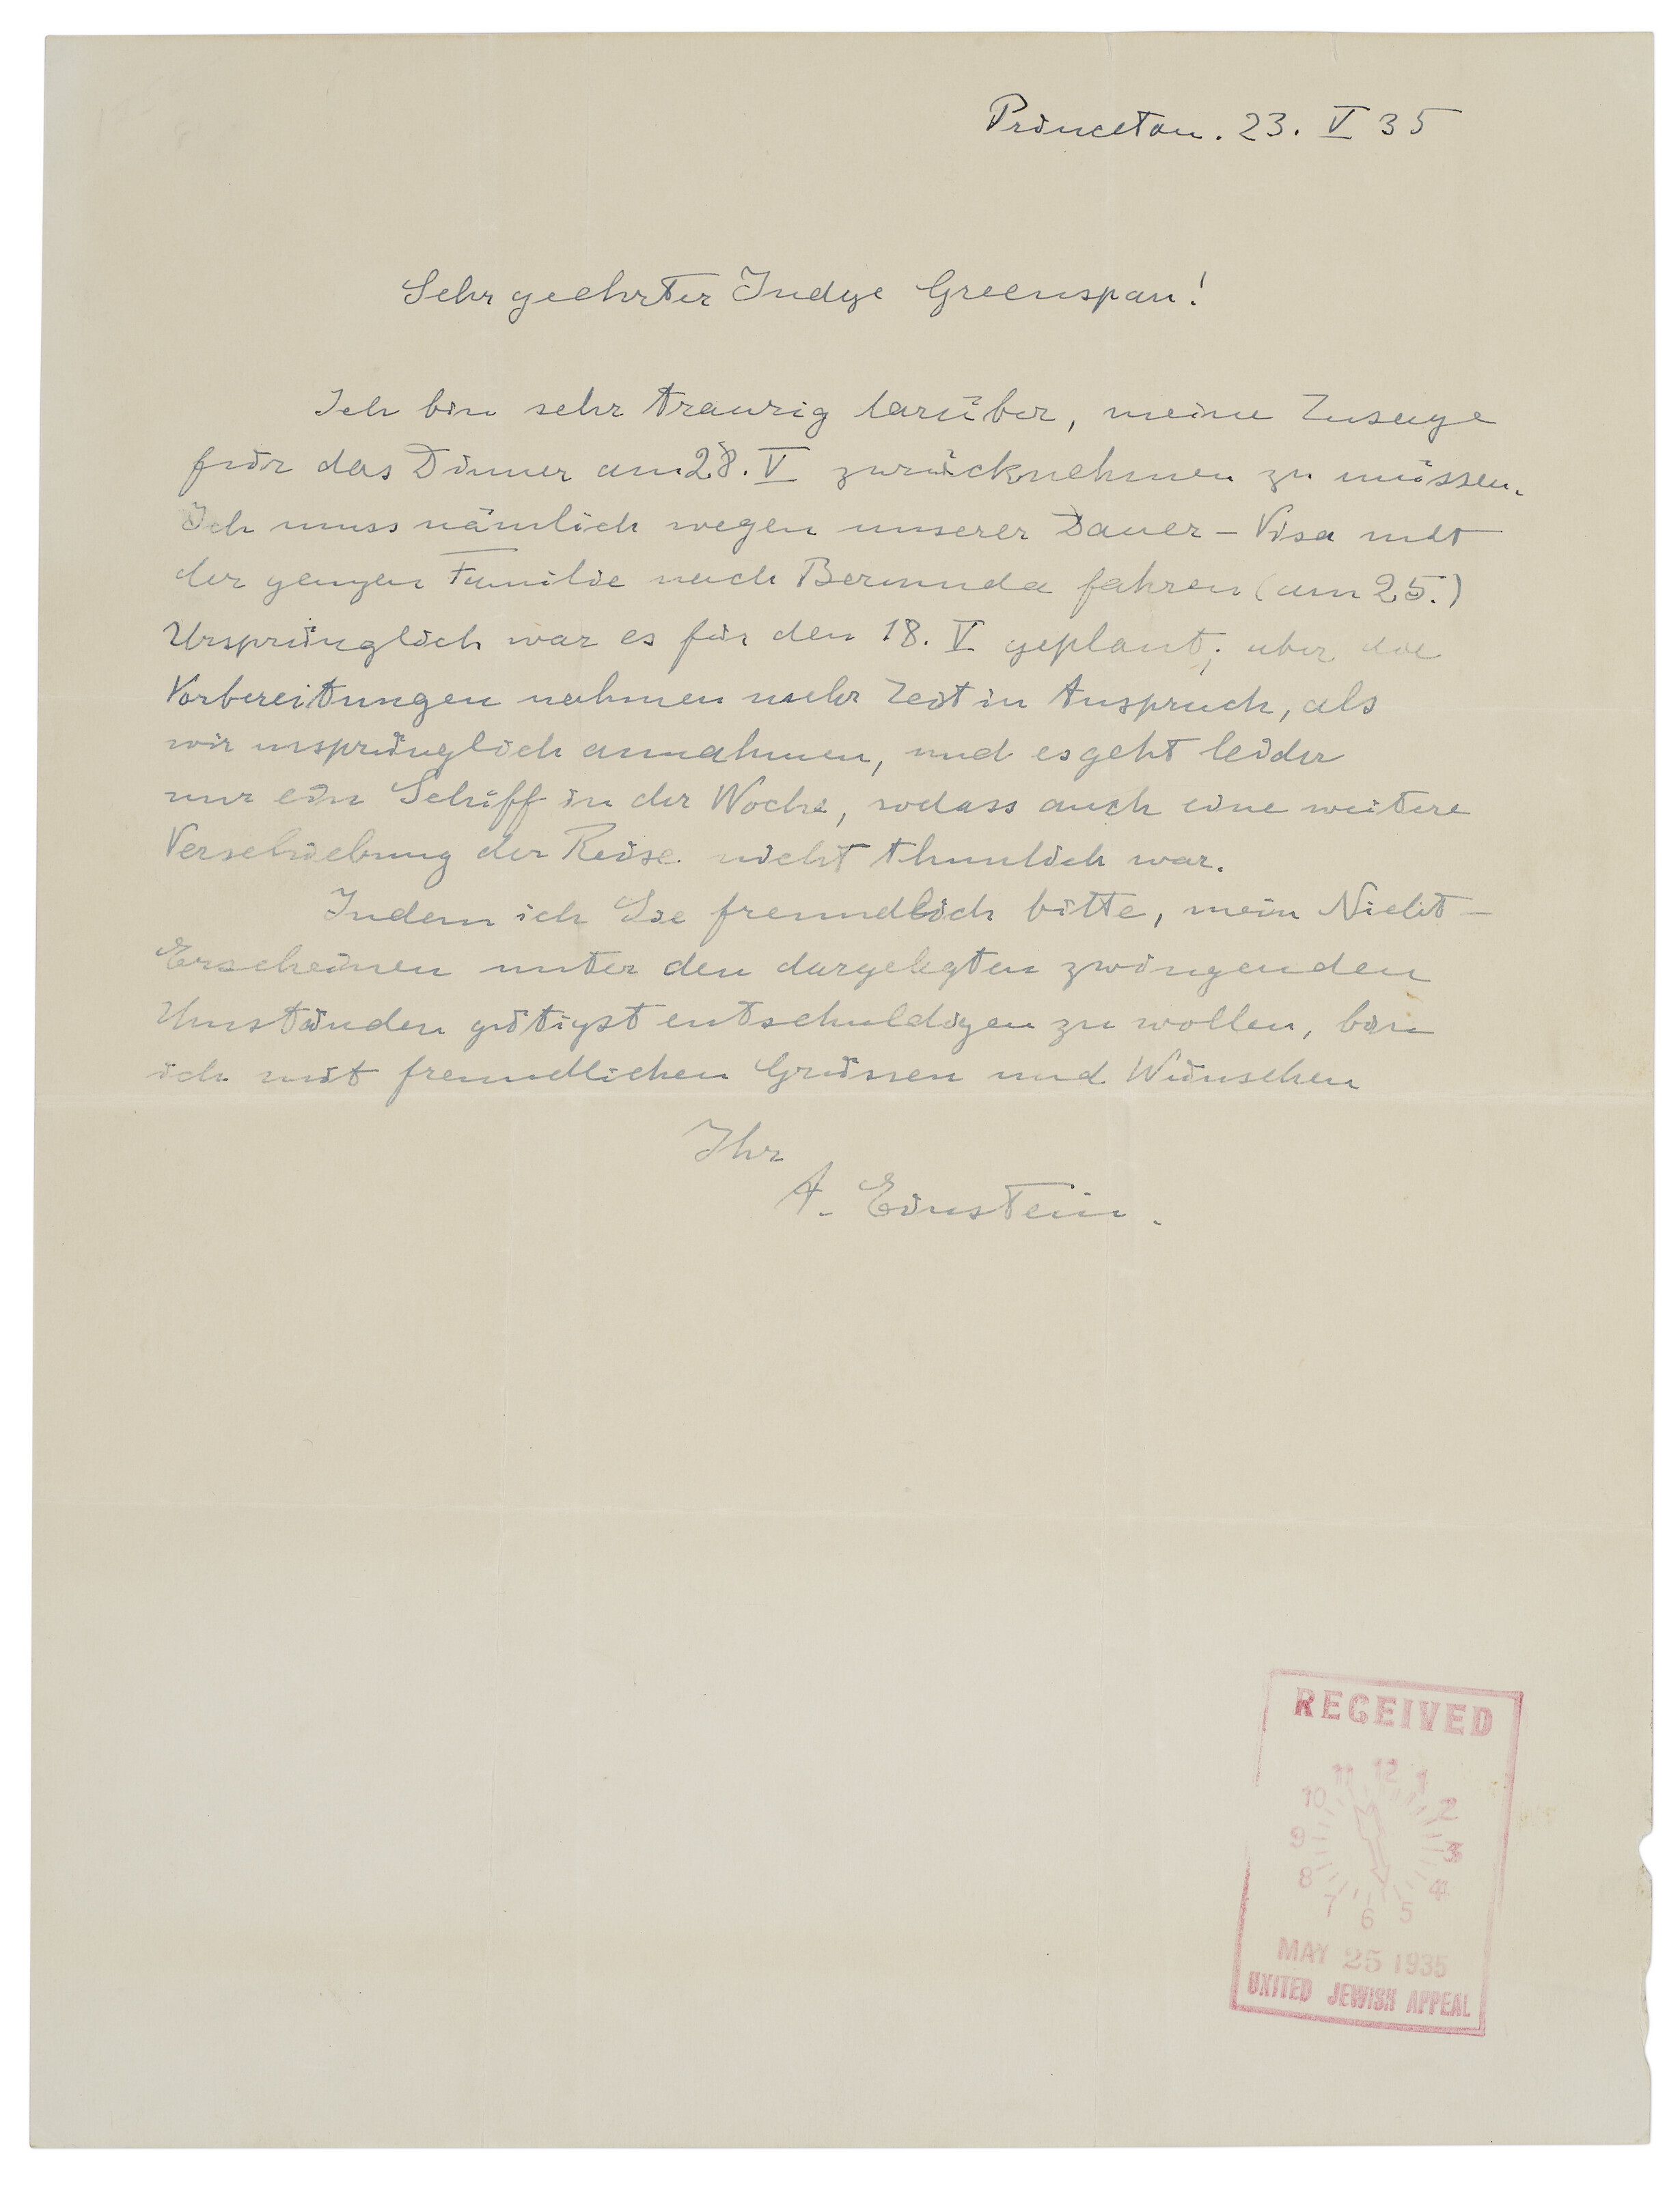 Princeton. 23. V 35
Sehr geehrter Judge Greenspan!
Ich bin sehr traurig darüber, meine Zusage
für das Dinner am 28. V zurücknehmen zu müssen.
Ich muss nämlich wegen unserer Dauer-Visa mit
der ganzen Familie nach Bermuda fahren (am 25.)
Ursprünglich war es für den 18. V geplant; aber die
Vorbereitungen nahmen mehr Zeit in Anspruch, als
wir ursprünglich annahmen, und es geht leider
nur ein Schiff in der Woche, sodass auch eine weitere
Verschiebung der Reise nicht thunlich war.
Indem ich Sie freundlich bitte, mein Nicht-
Erscheinen unter den dargelegten zwingenden
Umständen gütigst entschuldigen zu wollen, bin
ich mit freundlichen Grüssen und Wünschen
Ihr
A. Einstein.
RECEIVED
11 12 1
10 2
9 3
8 4
7 6 5
MAY 25 1935
UNITED JEWISH APPEAL